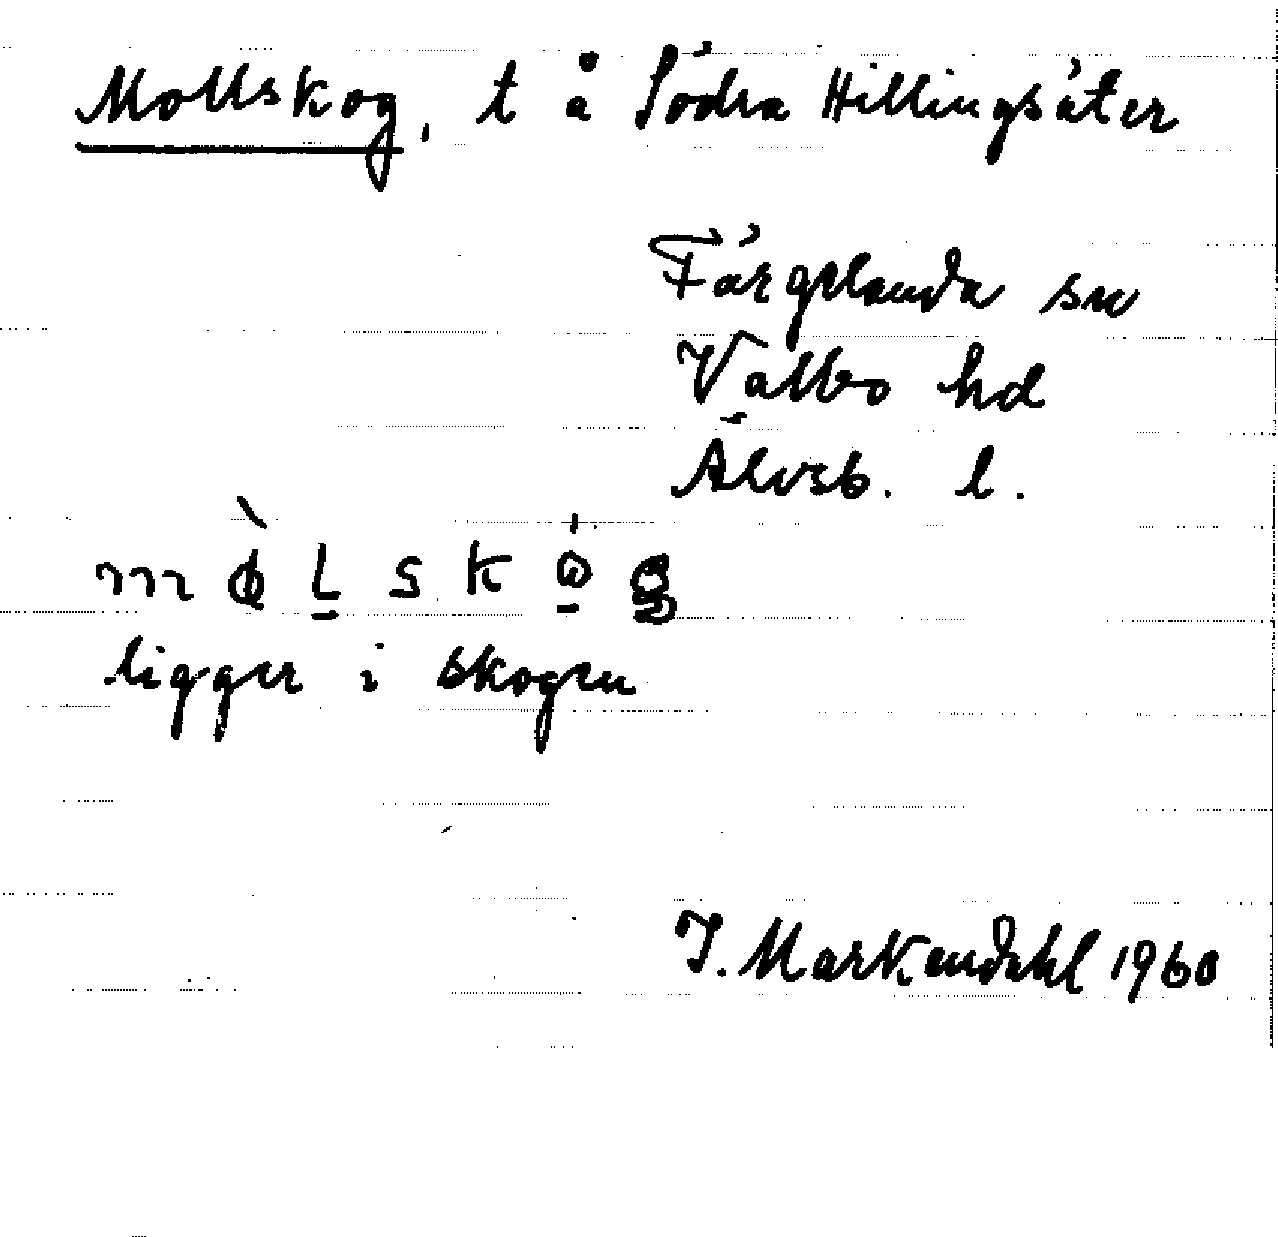 Mollskog, t å Södra Hillingsäter
Färgelanda sn
Valbo hd
Älvsb. l.
ligger i skogen
J. Markendahl 1960